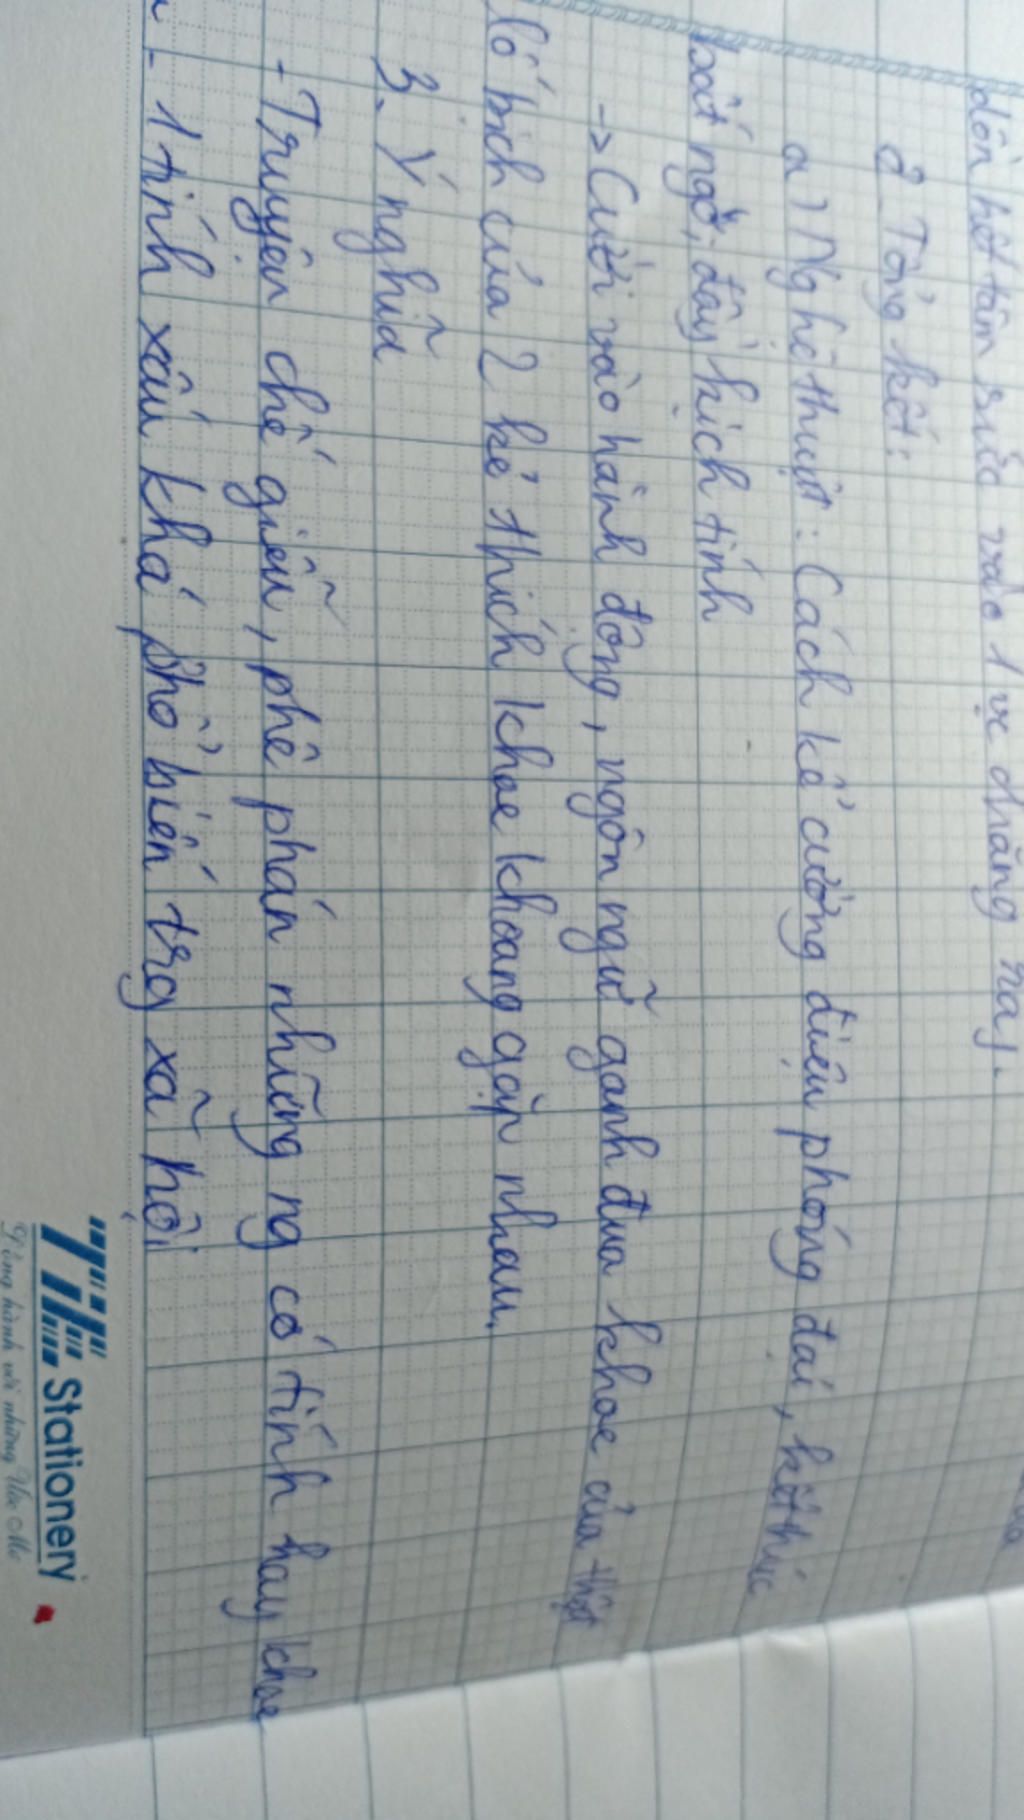 dồn hết tâm sức vào 1 vc chẳng hay.
2 Tổng kết:
a) Nghệ thuật: Cách kể cường điệu phóng đại, kết thúc
bất ngờ, đầy kịch tính
-> Cười vào hành động, ngôn ngữ ganh đua khoe của thật
lố bịch của 2 kẻ thích khoe khoang gặp nhau.
3. Ý nghĩa
- Truyện chế giễu, phê phán những ng có tính hay khoe
- 1 tính xấu khá phổ biến trg xã hội
TiP Stationery
Đồng hành với những Ước Mơ